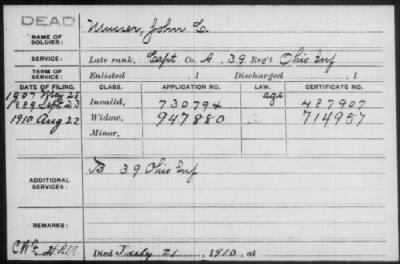 DEAD
NAME OF SOLDIER: Musser, John C.
SERVICE: Late rank, Capt Co. A, 39 Reg't Ohio Inf
TERM OF SERVICE: Enlisted , 1 Discharged , 1
DATE OF FILING. CLASS. APPLICATION NO. LAW. CERTIFICATE NO.
1907 May 28 age
1889 Sept 23 Invalid, 730794 487907
1910 Aug 22 Widow, 947880 714957
Minor,
ADDITIONAL SERVICES: B 39 Ohio Inf
REMARKS:
Died July 21, 1910, at